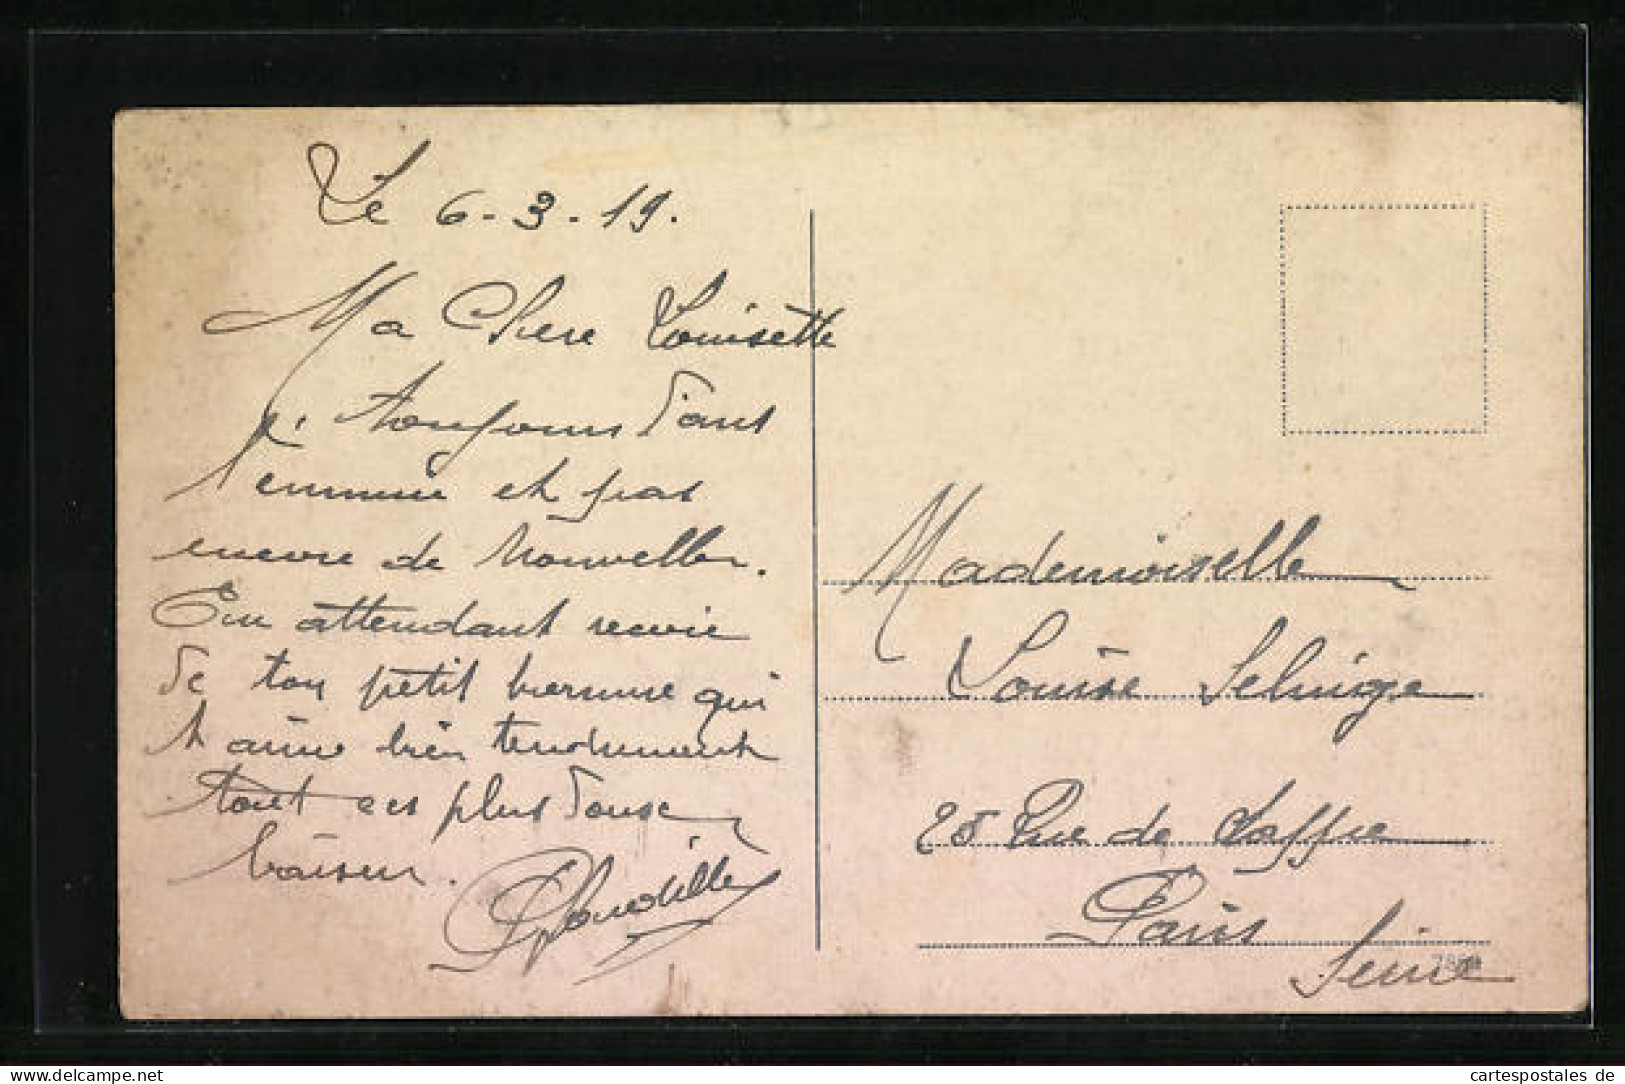 Le 6-3-19.
Ma Chere Louisette
toujours dans
l'ennuie et pas
encore de Nouvelles.
En attendant recoie
de ton petit homme qui
t aime bien tendrement
tout ces plus douse
baiser.
Mademoiselle
Louise
25 Rue de
Paris
Seine
cartespostales de